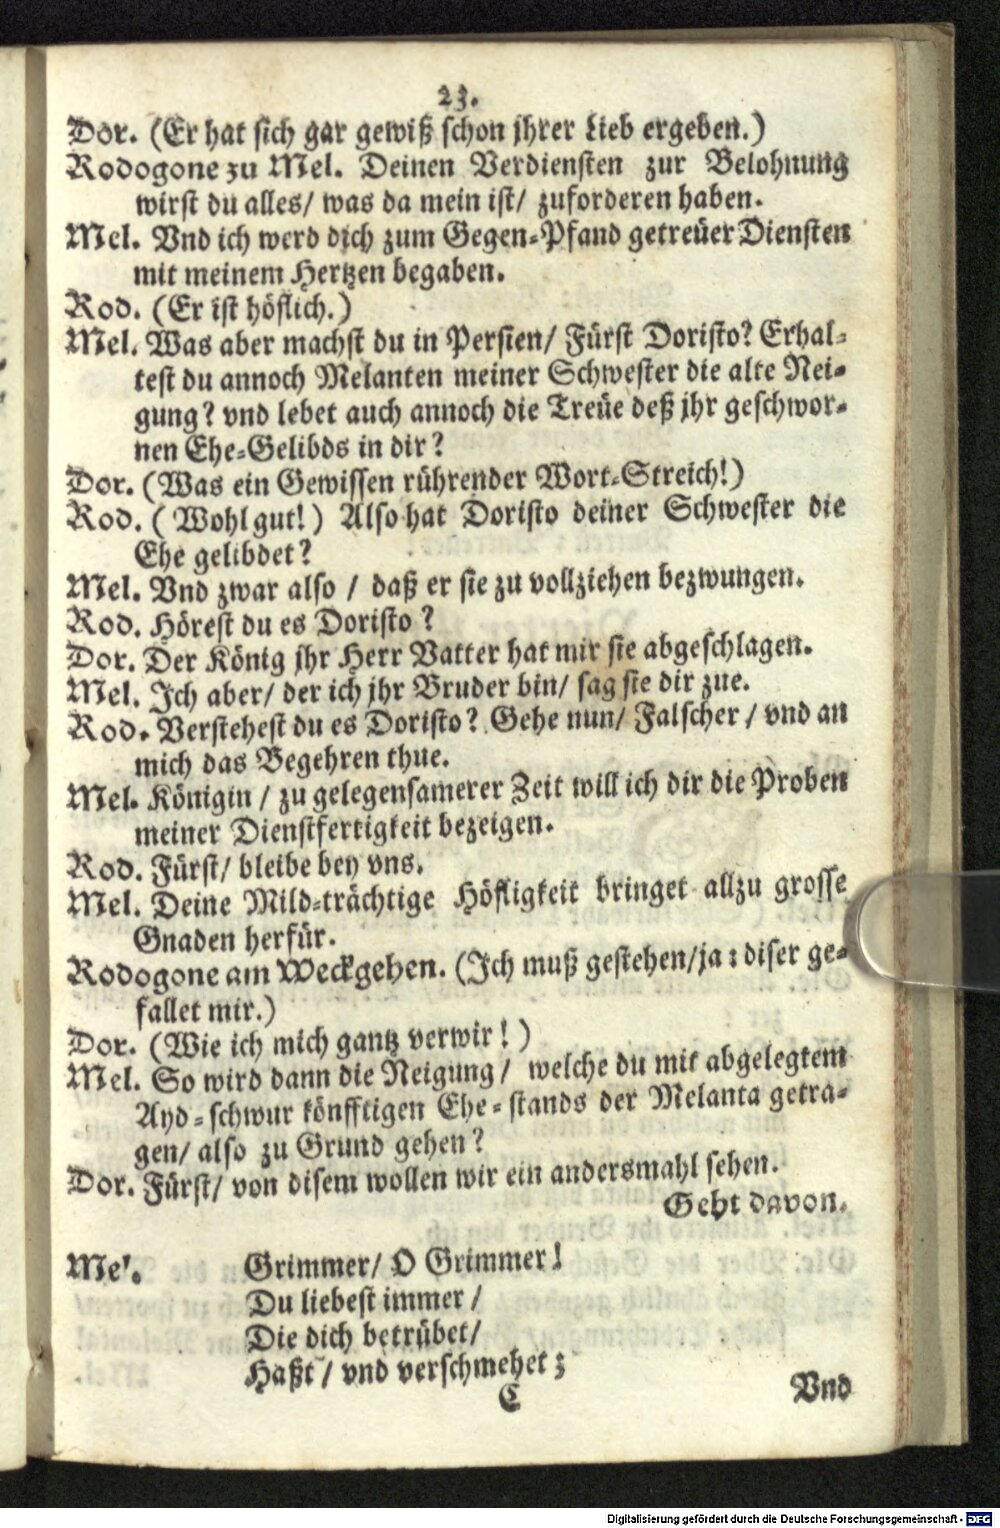 23.
Dor. (Er hat sich gar gewiß schon jhrer Lieb ergeben.)
Rodogone zu Mel. Deinen Verdiensten zur Belohnung
wirst du alles/ was da mein ist/ zuforderen haben.
Mel. Vnd ich werd dich zum Gegen-Pfand getreüer Diensten
mit meinem Hertzen begaben.
Rod. (Er ist höflich.)
Mel. Was aber machst du in Persien/ Fürst Doristo? Erhal-
test du annoch Melanten meiner Schwester die alte Nei-
gung? vnd lebet auch annoch die Treüe deß jhr geschwor-
nen Ehe-Gelibds in dir?
Dor. (Was ein Gewissen rührender Wort-Streich!)
Rod. (Wohl gut!) Also hat Doristo deiner Schwester die
Ehe gelibdet?
Mel. Vnd zwar also / daß er sie zu vollziehen bezwungen.
Rod. Hörest du es Doristo?
Dor. Der König jhr Herr Vatter hat mir sie abgeschlagen.
Mel. Ich aber/ der ich jhr Bruder bin/ sag sie dir zue.
Rod. Verstehest du es Doristo? Gehe nun/ Falscher / vnd an
mich das Begehren thue.
Mel. Königin / zu gelegensamerer Zeit will ich dir die Proben
meiner Dienstfertigkeit bezeigen.
Rod. Fürst/ bleibe bey vns.
Mel. Deine Mild-trächtige Höfligkeit bringet allzu grosse
Gnaden herfür.
Rodogone am Weckgehen. (Ich muß gestehen/ja: diser ge-
fallet mir.)
Dor. (Wie ich mich gantz verwir!)
Mel. So wird dann die Neigung/ welche du mit abgelegtem
Ayd-schwur könfftigen Ehe-stands der Melanta getra-
gen/ also zu Grund gehen?
Dor. Fürst/ von disem wollen wir ein andersmahl sehen.
Geht davon.
Mel. Grimmer/ O Grimmer!
Du liebest immer /
Die dich betrübet/
Haßt / vnd verschmehet;
C Vnd
Digitalisierung gefördert durch die Deutsche Forschungsgemeinschaft - DFG